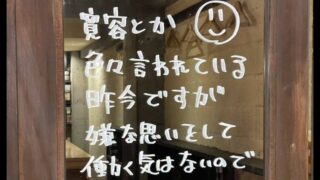 寛容とか
色々言われている
昨今ですが
嫌な思いをして
働く気はないので